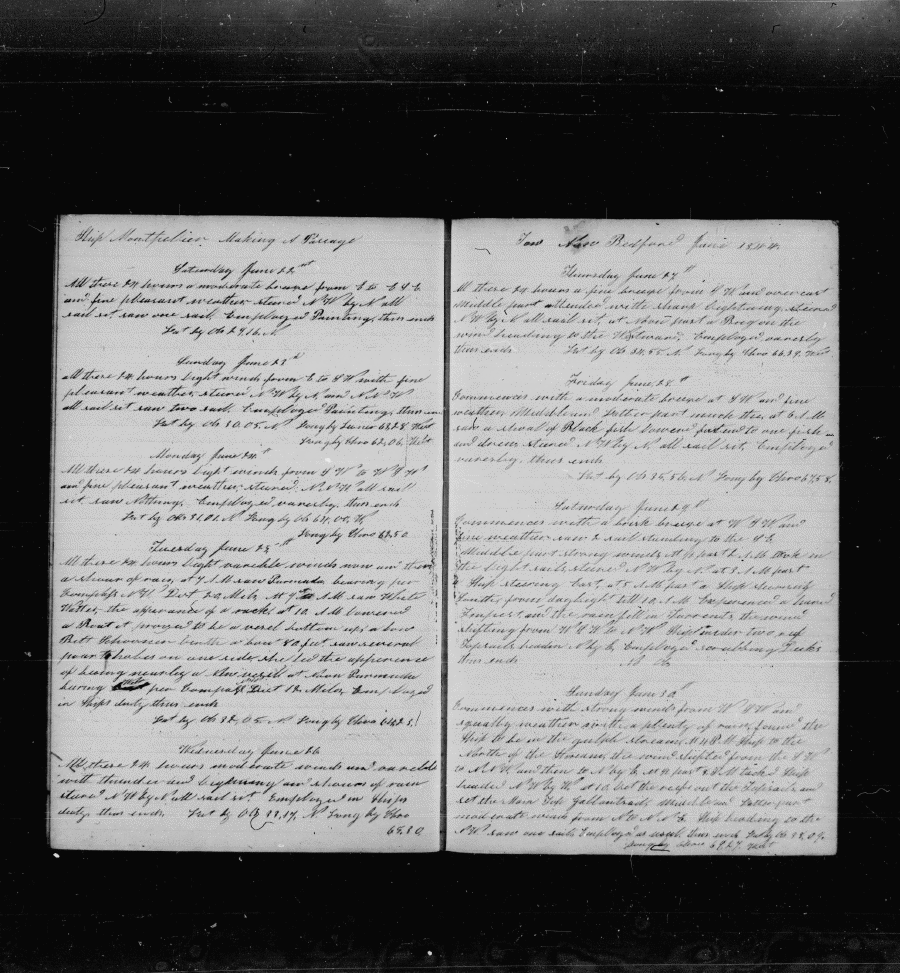 Ship Montpelier Making A Passage
Saturday June 22
All these 24 hours a moderate breeze from E to E S E
and fine pleasant weather stered N W by N all
sail set saw one sail Employed Painting, thus ends
Lat by Ob 29.16 N
Sunday June 23
all these 24 hours light winds from E to S W with fine
pleasant weather, stered N W by N, and N N W
all sail set saw two sails Employed Painting, thus ends
Lat by Ob 30.05 N Long by Luner 63.28 West
Long by Chro 62.06 West
Monday June 24
All these 24 hours light winds from S W to W S W
and fine pleasant weather stered N N W all sail
set saw Nothing, Employed varesly, thus ends
Lat by Ob 31.01 N Long by Ob 64.08 W
Long by Chro 63.50
Tuesday June 25
All these 24 hours light varible winds now and then
a shower of rain, at 7 A M saw Burmada bearing per
Compass N W Dist 20 Mils, At 9 A M saw White
Watter, the apperance of a rock at 10 A M lowered
a Boat it proved to be a vesel bottom up, a low
Built Schooner length a bout 80 feet saw several
on one side, she had the apperence
of being nearly a New vesell at Noon Burmada
bearing per Compass Dist 12 Miles, Employed
in Ships duty thus ends
Lat by Ob 32.05 N Long by Chro
Wednesday June 26
All these 24 hours moderate winds and varible
with thunder and lightning and showers of rain
stered N W by N all sail set Employed in Ships
duty, thus ends Lat by Ob 33.17 N Long by Chro
65.30
Tow New Bedford June 1844
Thursday June 27
All these 24 hours a fine breeze from S W and overcast
Middle part attended with sharp lightning, stered
N W by N all sail set, at Noon past a Brig on the
wind heading to the Westward, Employed varesly
thus ends Lat by Ob 34.55 N Long by Chro 66.29 West
Friday June 28
Commences with a moderate breeze at S W and fine
weather, Middle and Latter part much the same at 6 A M
saw a shoal of Black fish lowered fastend to one fish
and drew stered N W by N, all sail set, Employed
varesly, thus ends
Lat by Ob 35.56 N Long by Chro 67.58
Saturday June 29
Commences with a brisk breeze at W S W and
fine weather saw 2 sail standing to the S E
Middle part strong winds At past 2 A M took in
the light sails stered N W by N at 3 A M past
a Ship steering East, at 5 A M past a Ship steering
South, from daylight till 10 A M Experienced a heavy
Tempest and the rain fell in Torrents the wind
shifting from W S W to N W Ship under two reef
Topsails headin N by E Employed scrubbing Decks
thus ends No Ob
Sunday June 30
Commences with strong winds from W S W and
squally weather with a plenty of rain, found the
Ship to be in the gulph stream, At 4 P M Ship to the
North of the Stream, the wind shifted from the S W
to N N W and then to N by E At past 8 P M tacked Ship
headed N W by W at 10 let the reefs out the Topsails and
set the Main Top Gallantsail, Middle and Latter part
moderate winds from N W N N E Ship heading to the
N W saw one sail Employed as usual thus ends Lat by Ob 38.09
Long by Chro 69.27 West